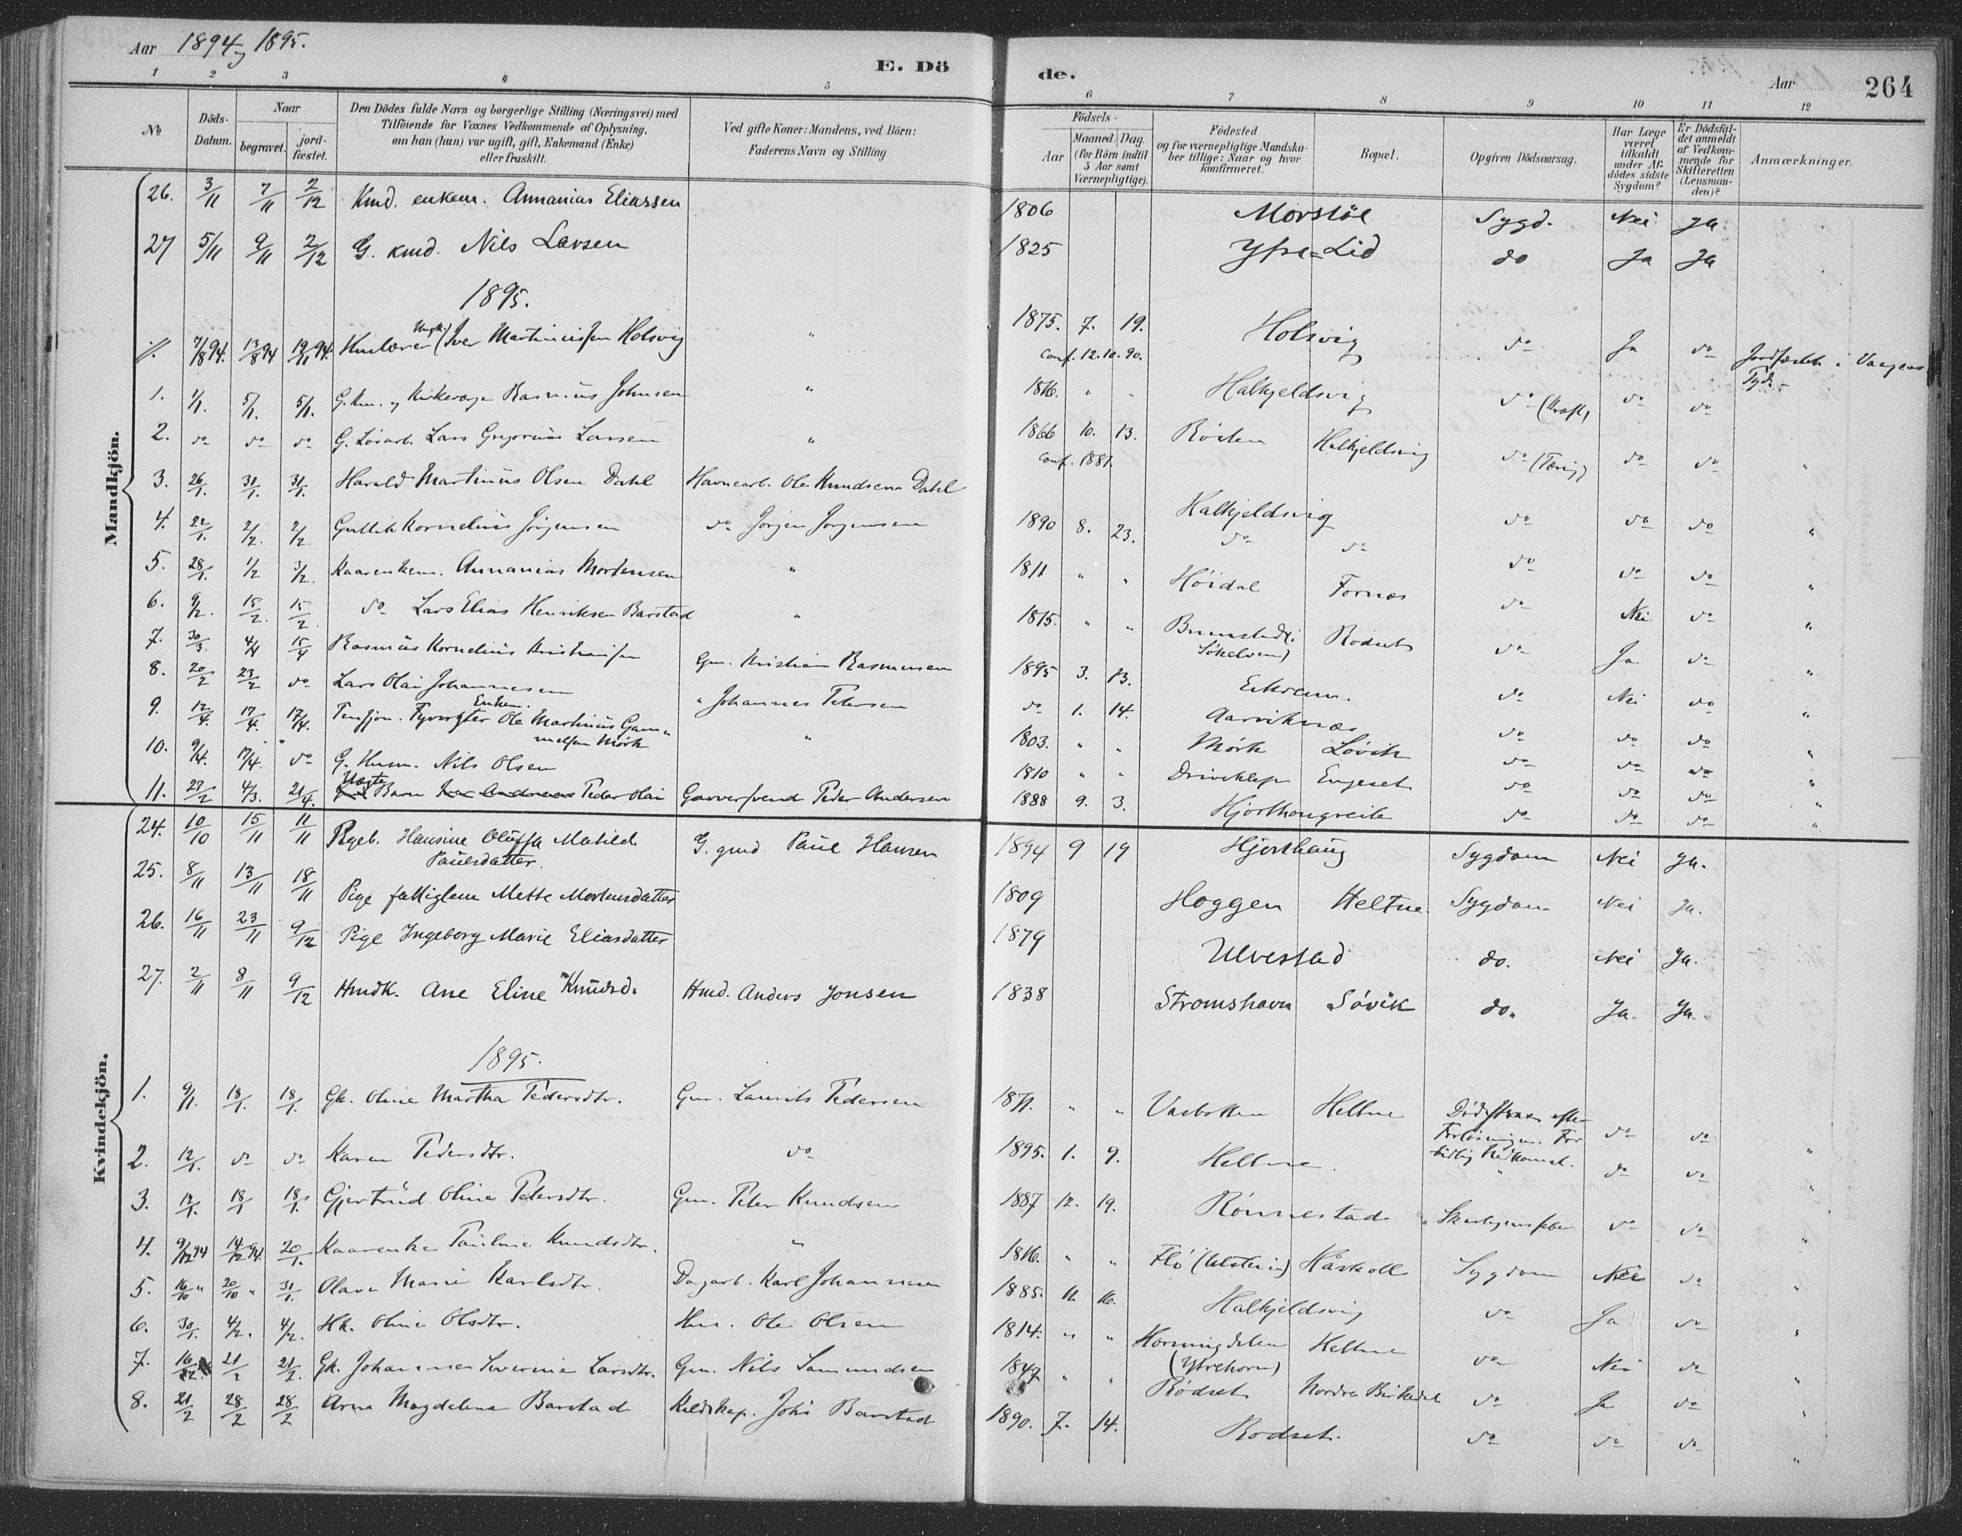 Aar 1894 og 1895.
E. Döde.
Aar
264
1 2 3 4 5 6 7 8 9 10 11 12
№
Döds-Datum.
Naar
begravet.
jord-fæstet.
Den Dödes fulde Navn og borgerlige Stilling (Næringsvei) med
Tilföiende for Voxnes Vedkommende af Oplysning,
om han (hun) var ugift, gift, Enkemand (Enke)
eller fraskilt.
Ved gifte Koner: Mandens, ved Börn:
Faderens Navn og Stilling
Födsels-
Aar
Maaned.
Dag.
(for Börn indtil
5 Aar samt
Værnepligtige).
Födested
og for værnepligtige Mandska-
ber tillige: Naar og hvor
konfirmeret.
Bopæl.
Opgiven Dödsaarsag.
Har Læge
været
tilkaldt
under Af-
dödes sidste
Sygdom?
Er Dödsfal-
det anmeldt
af Vedkom-
mende for
Skifteretten
(Lensman-
den)?
Anmærkninger.
Mandkjön.
26. 3/11 7/11 2/12 Kmd. enkem. Annanias Eliassen 1806 Morstöl Sygd. Nei Ja.
27 5/11 9/11 2/12 G. kmd. Nils Larsen 1825 Yfre-Lid do Ja Ja
1895.
7/8 94. 13/8 94 19/11 94. Ungk. Iver Martinussen Holsvig " 1875. 7. 19. Holsvig do Ja do Jordfæstet i
conf. 12.10.90.
1. 1/1. 5/1. 5/1. G. Km. og Kirkeværge Rasmus Johnsen " 1816. " " Halkjeldsvig do (Kræft) do do
2. do do do G. Lösarb. Lars Gregorius Larsen " 1866 10. 13. Rösten Halkjeldsvig do (Tæring) do do "
conf. 1881.
3. 26/1. 31/1. 31/1. Harald Martinus Olsen Dahl Havnearb. Ole Knudsen Dahl 1890 8. 23. Halkjeldsvig do do do "
4. 22/1. 2/2. 2/2. Guttik Kornelius Jörgensen do Jörgen Jörgensen do do do do do "
5. 28/1. 1/2 3/2. Kaarenkem. Annanias Mortensen " 1811 " " Höidal Fornæs do Nei do "
6. 9/2. 15/2. 15/2. do Lars Elias Henriksen Barstad " 1815. " " Brunstad i Rödset do Ja do "
Sökelven)
7. 30/3 4/4 15/4 Rasmus Kornelius Kristiansen Gm. Kristian Rasmussen 1895 3. 13. Eikrem. do Nei do "
8. 20/2 23/2 do Lars Olai Johannessen " Johannes Petersen do 1. 14. Aarviknæs do do do "
9. 12/4. 17/4. 17/4. Pensjon. Fyrvogter Enkem. Ole Martinus Gam- " 1803. " " Mörk Lövik do do do "
melsen Mörk
10. 9/4. 17/4. do G. Husm. Nils Olsen 1810 " " Driveklep Engeset do do do "
11. 27/2 4/3. 21/4. Uægte Barn Peder Olai Garversvend Peder Andersen 1888 9. 3. Hjorthougreite do do do "
Kvindekjön.
24. 10/10 15/11 11/11 Pigeb. Hansine Oluffa Matild G. gmd. Paul Hansen 1894 9 19 Hjorthaug Sygdom Nei Ja.
Paulsdatter.
25. 8/11 13/11 18/11 Pige fattiglem Mette Mortensdatter 1809 Hoggen Heltne. Sygdom Nei Ja.
26. 16/11 23/11 9/12 Pige Ingeborg Marie Eliasdatter 1879 Ulvestad do. Nei Ja.
27. 2/11 8/11 9/12 Hmdk. Ane Eline Knudsd. Hmd. Anders Jonsen 1838 Stromshavn Sövik do. Ja. Ja.
1895.
1. 9/1. 18/1. 18/1. Gk. Oline Martha Pedersdtr. Gm. Laurits Pedersen 1871. " " Vasbotten Heltne Död efter do do "
Forlösningen. For
2. 12/1. do do Karen Pedersdtr. do 1895. 1. 9. Heltne. tidlig Nedkomst. do do "
3. 12/1. 18/1 18/1. Gjertrud Oline Petersdtr. Gm. Peter Knudsen 1887 12. 19. Rönnestad Skarlagensfeber do do "
4. 9/12 94 14/12 94. 20/1. Kaarenke Pauline Knudsdtr. " 1816. " " Flö (Ulstein) Håskoll Sygdom Nei do
5. 16/10 " 20/10 " 31/1. Olava Marie Karlsdtr. Dagarb. Karl Johannesen 1885. 11. 16. Halkjeldsvig do Ja do "
6. 30/1. 4/2. 4/2. Hk. Oline Olsdtr. Hm. Ole Olsen 1814. " " Hornindalen Heltne do Nei do "
(Ytrehorn)
7. 16/12. 21/2 21/2. Gk. Johanne Severine Larsdtr. Gm. Nils Samundsen 1847 " " Rödset Nordre Birkedal do Ja do "
8. 21/2 28/2 28/2 Anna Magdalena Barstad Kaldskap. Johs Barstad 1890. 7. 14. Rödset. do do do "